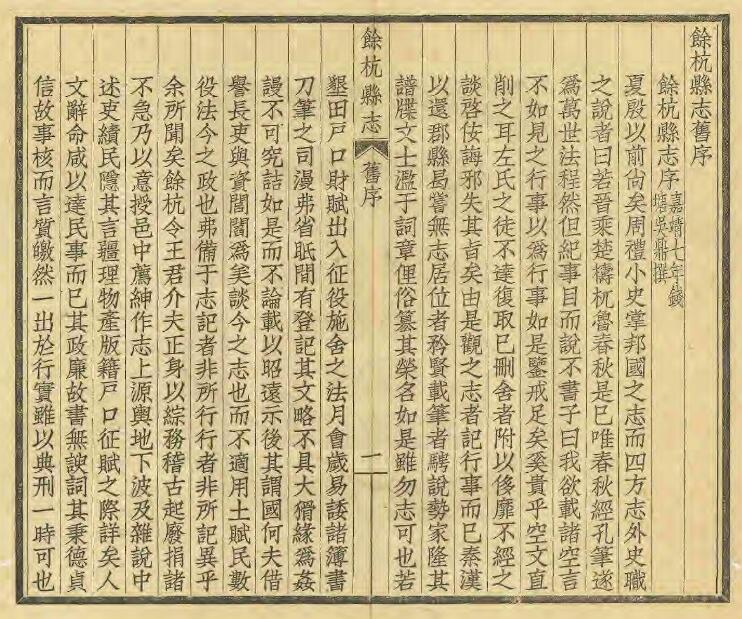 餘杭縣志舊序
餘杭縣志序嘉靖七年錢
塘吳鼎撰
夏殷以前尙矣周禮小史掌邦國之志而四方志外史職
之說者曰若晉乘楚檮杌魯春秋是已唯春秋經孔筆遂
爲萬世法程然但紀事目而說不書子曰我欲載諸空言
不如見之行事以爲行事如是鑒戒足矣奚貴乎空文直
削之耳左氏之徒不達復取已刪舍者附以侈靡不經之
談啓佞誨邪失其旨矣由是觀之志者記行事而已秦漢
以還郡縣曷嘗無志居位者矜賢載筆者騁說勢家隆其
譜牒文士濫于詞章俚俗纂其榮名如是雖勿志可也若
餘杭縣志
舊序
二
墾田戸口財賦出入征役施舍之法月會歲易諉諸簿書
刀筆之司漫弗省眂間有登記其文略不具大猾緣爲姦
謾不可究詰如是而不論載以昭遠示後其謂國何夫借
譽長吏與資閭閻爲美談今之志也而不適用土賦民數
役法今之政也弗備于志記者非所行行者非所記異乎
余所聞矣餘杭令王君介夫正身以綜務稽古起廢捐諸
不急乃以意授邑中薦紳作志上源輿地下波及雜說中
述吏績民隱其言疆理物產版籍戸口征賦之際詳矣人
文辭命咸以達民事而已其政廉故書無諛詞其秉德貞
信故事核而言質皦然一出於行實雖以典刑一時可也